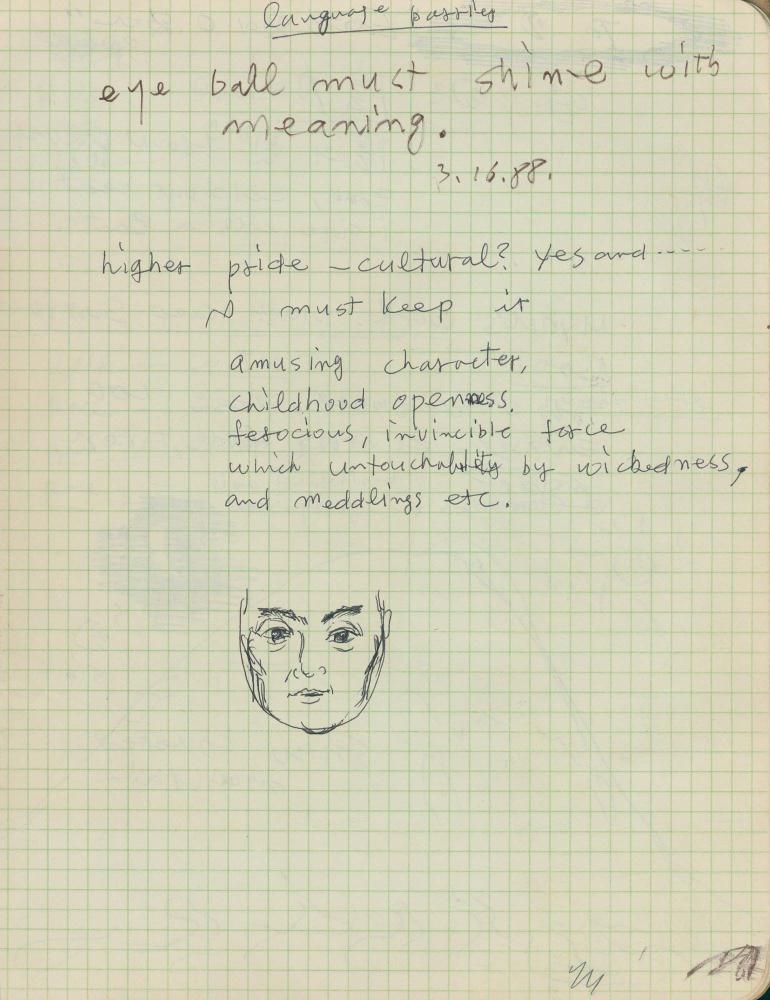 language barrier
eye ball must shine with
meaning.
3.16.88.
higher pride – cultural? Yes and ----
must keep it
amusing character,
childhood openness.
ferocious, invincible force
which untouchability by wickedness,
and meddlings etc.